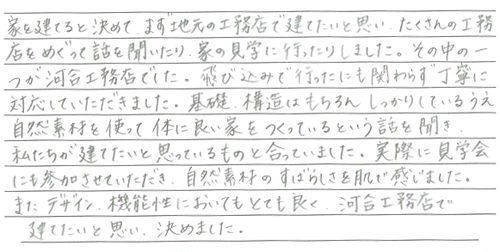 家を建てると決めて、まず地元の工務店で建てたいと思い、たくさんの工務
店をめぐって話を聞いたり、家の見学に行ったりしました。その中の一
つが河合工務店でした。飛び込みで行ったにも関わらず丁寧に
対応していただきました。基礎、構造はもちろん しっかりしているうえ
自然素材を使って体に良い家をつくっているという話を聞き、
私たちが建てたいと思っているものと合っていました。実際に見学会
にも参加させていただき、自然素材のすばらしさを肌で感じました。
また デザイン、機能性においてもとても良く、河合工務店で
建てたいと思い、決めました。